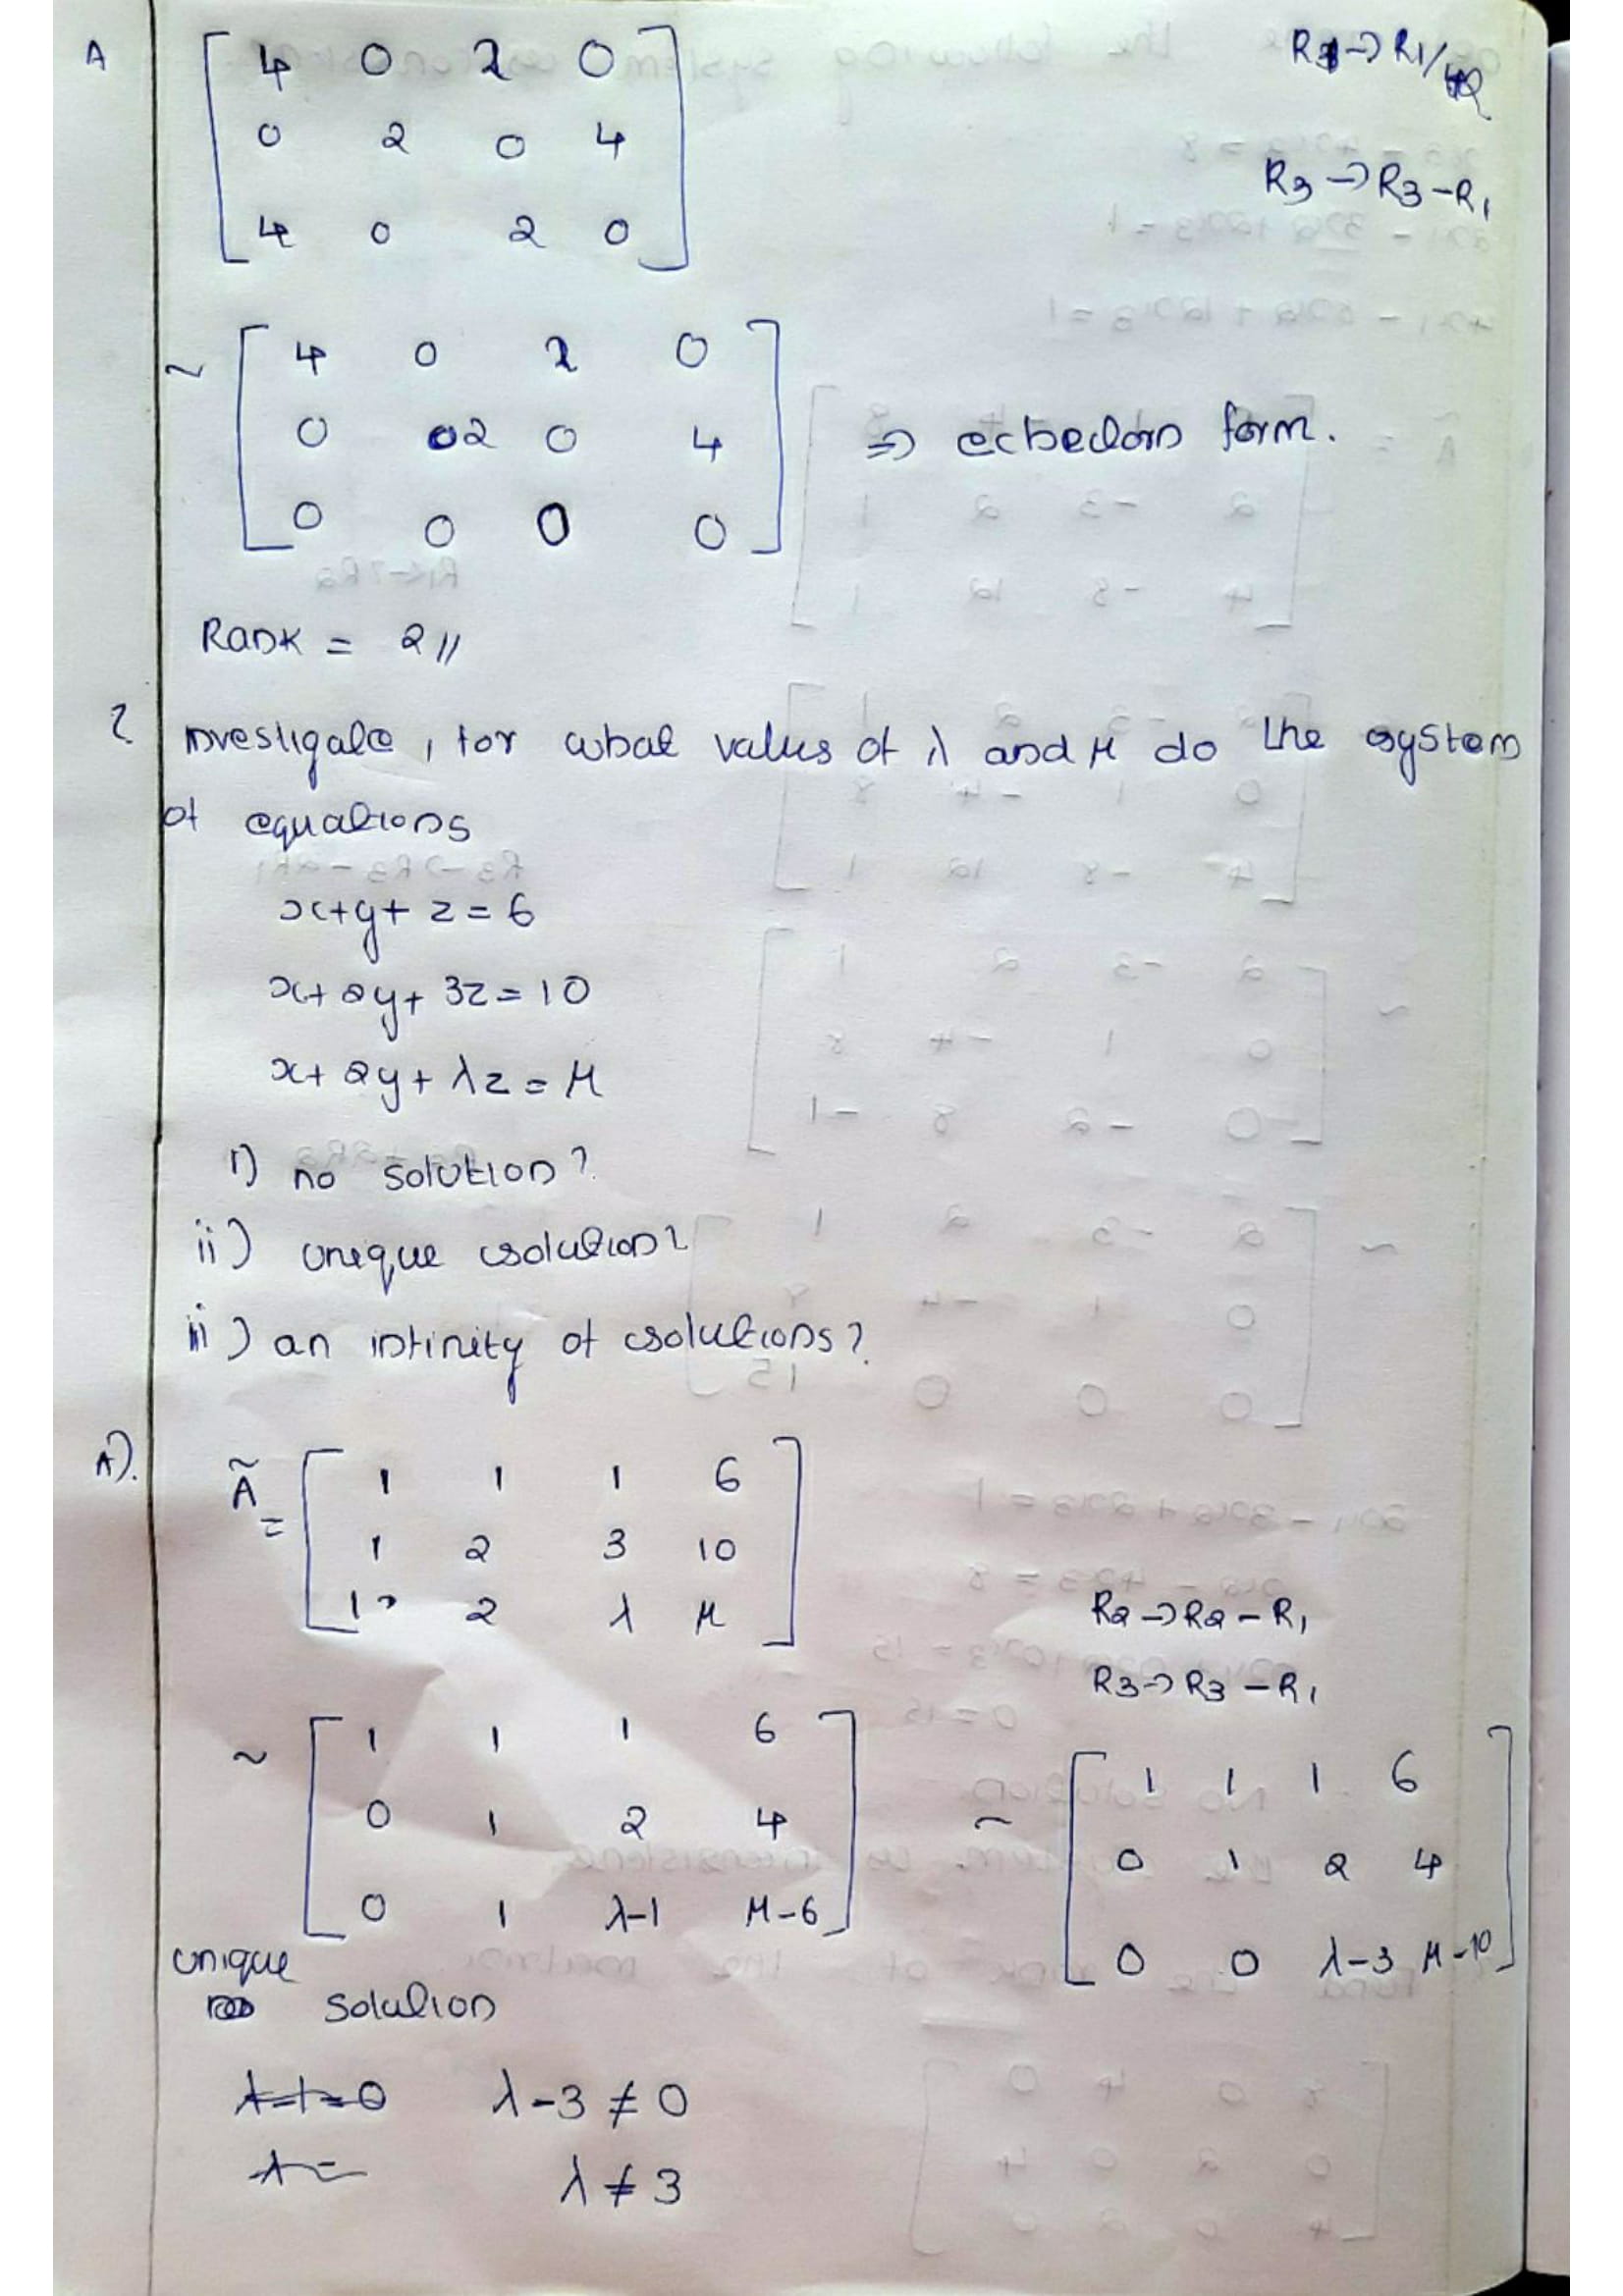 A [ 4 0 2 0 R1→R1/2
0 2 0 4
4 0 2 0 ] R3→R3-R1
~ [ 4 0 2 0
0 02 0 4 ⇒ echelon form.
0 0 0 0 ]
Rank = 2 //
? Investigate, for what values of λ and μ do the system
of equations
x+y+z=6
x+2y+3z=10
x+2y+λz=μ
i) no solution?
ii) unique solution?
iii) an infinity of solutions?
A). Ã = [ 1 1 1 6
1 2 3 10
1 2 λ μ ] R2→R2-R1
R3→R3-R1
~ [ 1 1 1 6
0 1 2 4
0 1 λ-1 μ-6 ] ~ [ 1 1 1 6
0 1 2 4
0 0 λ-3 μ-10 ]
unique
solution
λ-1=0 λ-3≠0
λ= λ≠3